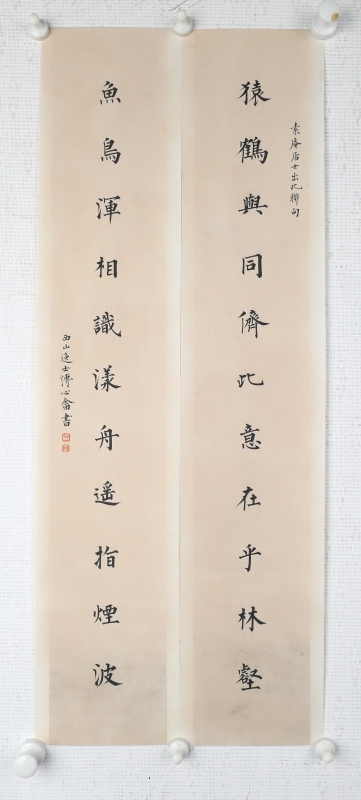 素庵居士出比撰句
猿鶴與同儕此意在乎林壑
魚鳥渾相識漾舟遥指煙波
西山逸士溥心畬書